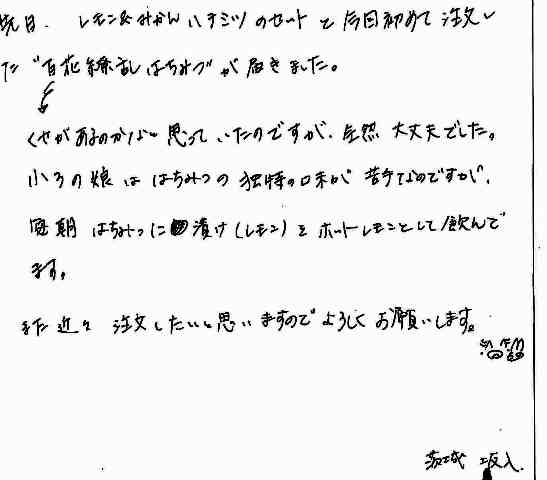 先日、レモン&みかんハチミツのセットと今回初めて注文し
た"百花繚乱はちみつ"が届きました。
くせがあるのかな…思っていたのですが、全然大丈夫でした。
小3の娘ははちみつの独特の味が苦手なのですが、
毎朝はちみつに漬け(レモン)をホットレモンとして飲んで
ます。
また近々注文したいと思いますのでよろしくお願いします。
茨城 坂入